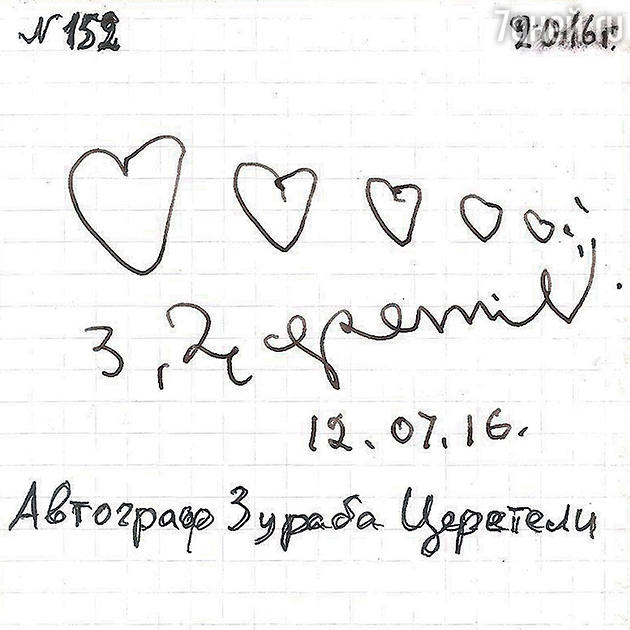 N 152 2016г.
7дней.ru
З, Церетели
12.07.16.
Автограф Зураба Церетели